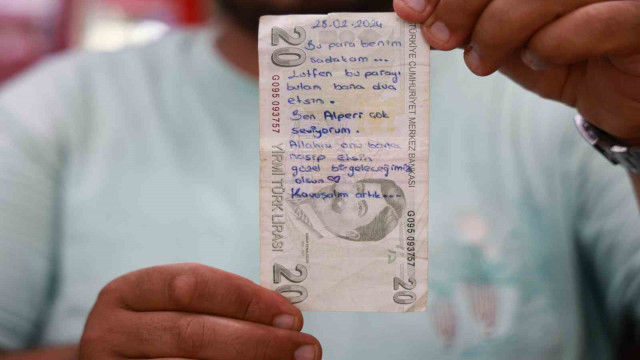 28.02.2024
Bu para benim
sadakam...
Lütfen bu parayı
bulan bana dua
etsin.
Ben Alperi çok
seviyorum.
Allahım onu bana
nasip etsin
güzel bir geleceğimiz
olsun ♡
Kavuşalım artık...
20
G095 093757
YİRMİ TÜRK LİRASI
20
TÜRKİYE CUMHURİYET MERKEZ BANKASI
G095 093757
20